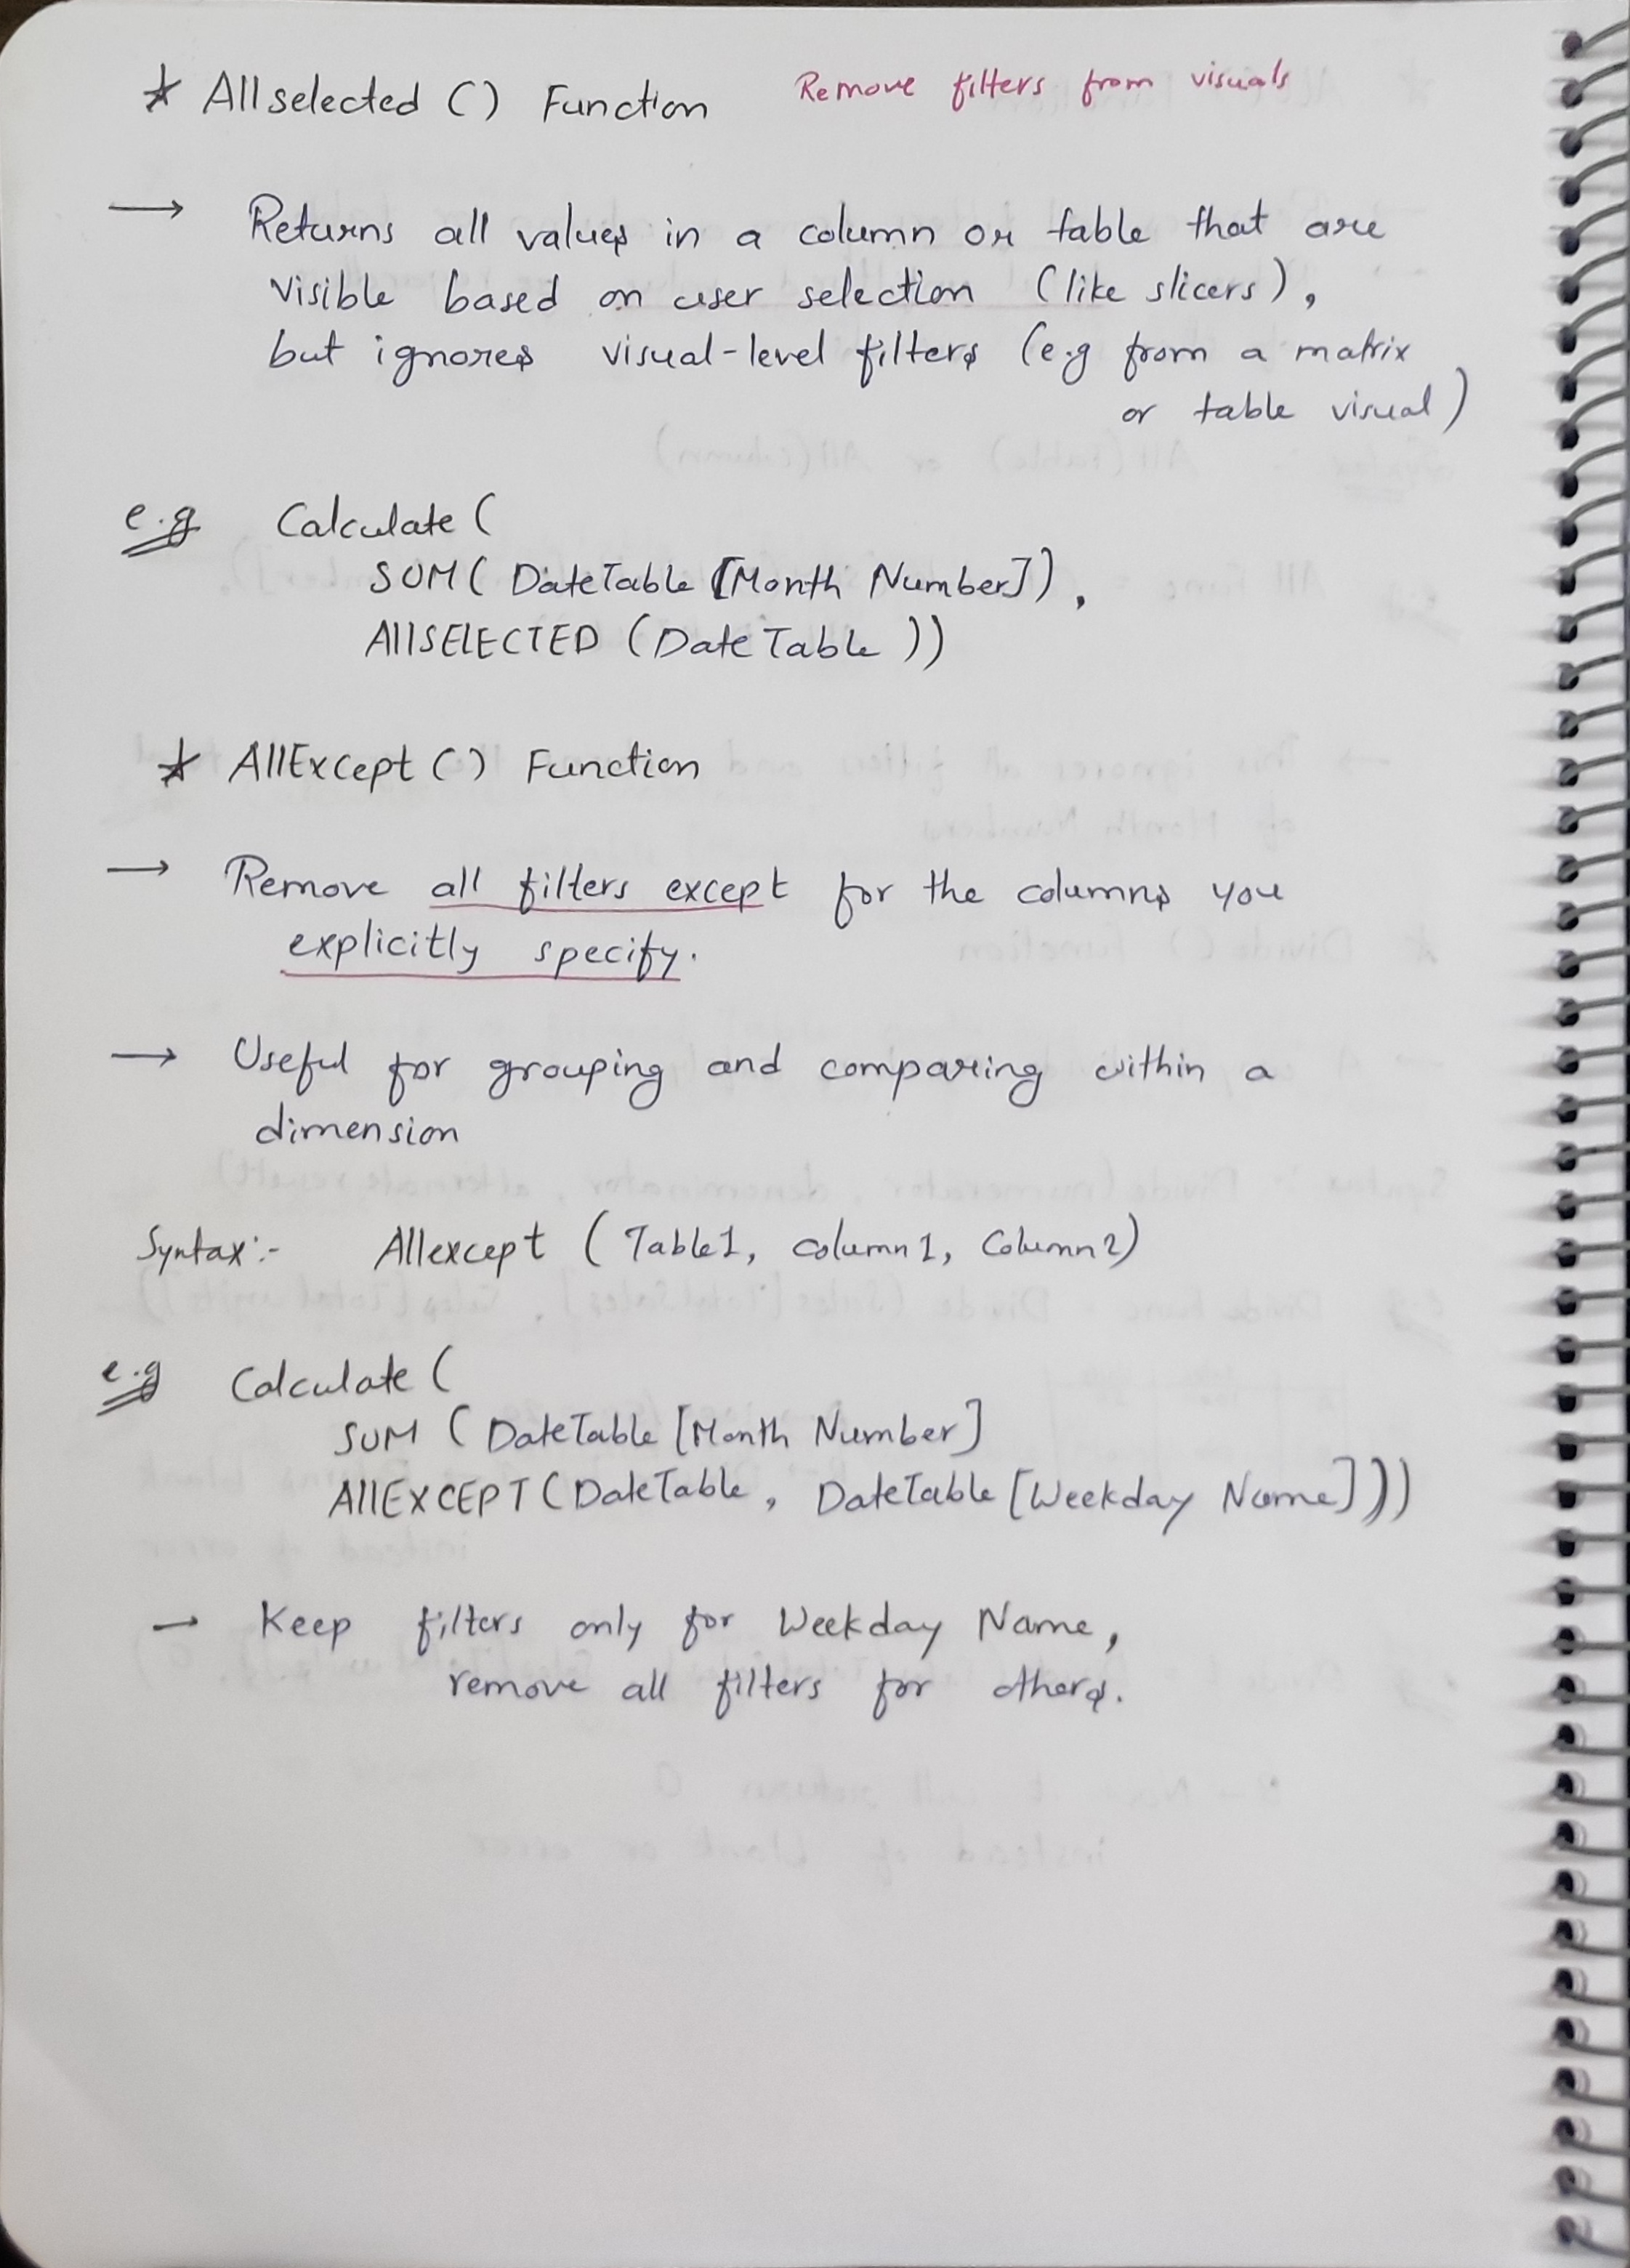 * Allselected () Function Remove filters from visuals
→ Returns all values in a column or table that are
visible based on user selection (like slicers),
but ignores visual-level filters (e.g from a matrix
or table visual)
e.g Calculate (
SUM( DateTable [Month Number]),
AllSELECTED (Date Table ))
* AllExcept () Function
→ Remove all filters except for the columns you
explicitly specify.
→ Useful for grouping and comparing within a
dimension
Syntax:- Allexcept ( Table1, column1, Column2)
e.g Calculate (
SUM ( DateTable [Month Number]
AllEXCEPT (DateTable, DateTable [Weekday Name]))
→ Keep filters only for Weekday Name,
remove all filters for others.